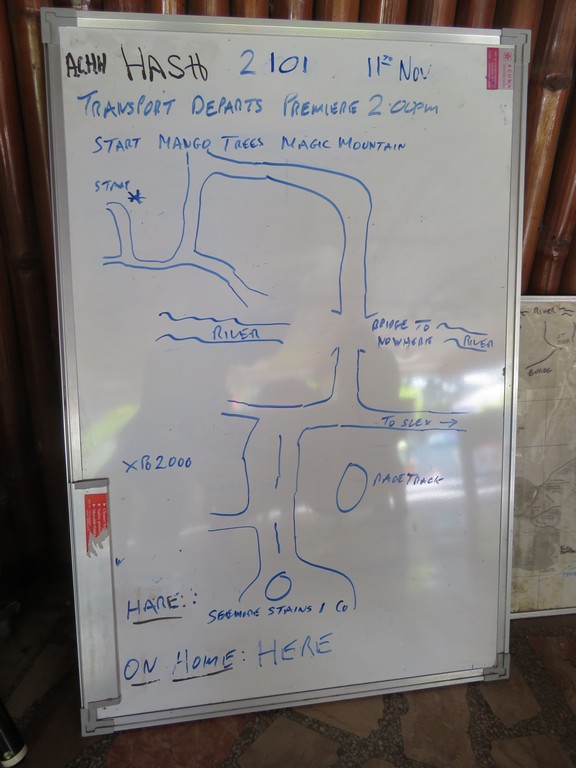 ACHH HASH 2101 11TH NOV
TRANSPORT DEPARTS PREMIERE 2:00PM
START MANGO TREES MAGIC MOUNTAIN
START
RIVER
BRIDGE TO
NOWHERE
RIVER
TO SLEX →
RACETRACK
HARE:
SEEMORE STAINS & CO
ON HOME: HERE
RIVER